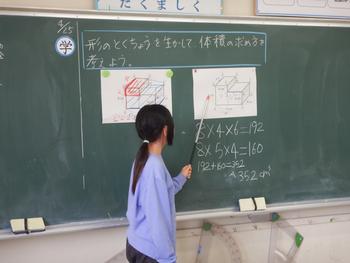 たくましく
4/25
学
形のとくちょうを生かして体積の求め方を
考えよう。
8×4×6=192
8×5×4=160
192+160=352
A 352cm³